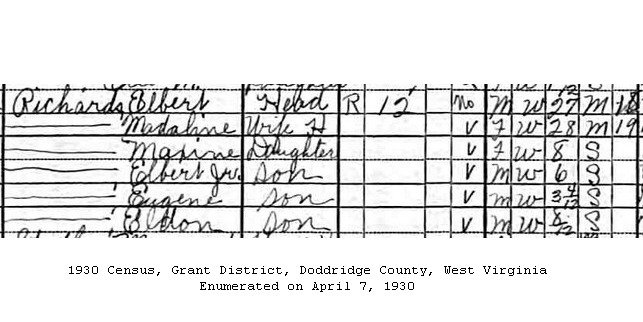 Richards, Elbert Head R 12 No M W 27 M 18
Madaline Wife H V F W 28 M 19
Maxine Daughter V F W 8 S
Elbert Jr. Son V M W 6 S
Eugene Son V M W 3 4/12 S
Eldon Son V M W 8/12 S
1930 Census, Grant District, Doddridge County, West Virginia
Enumerated on April 7, 1930